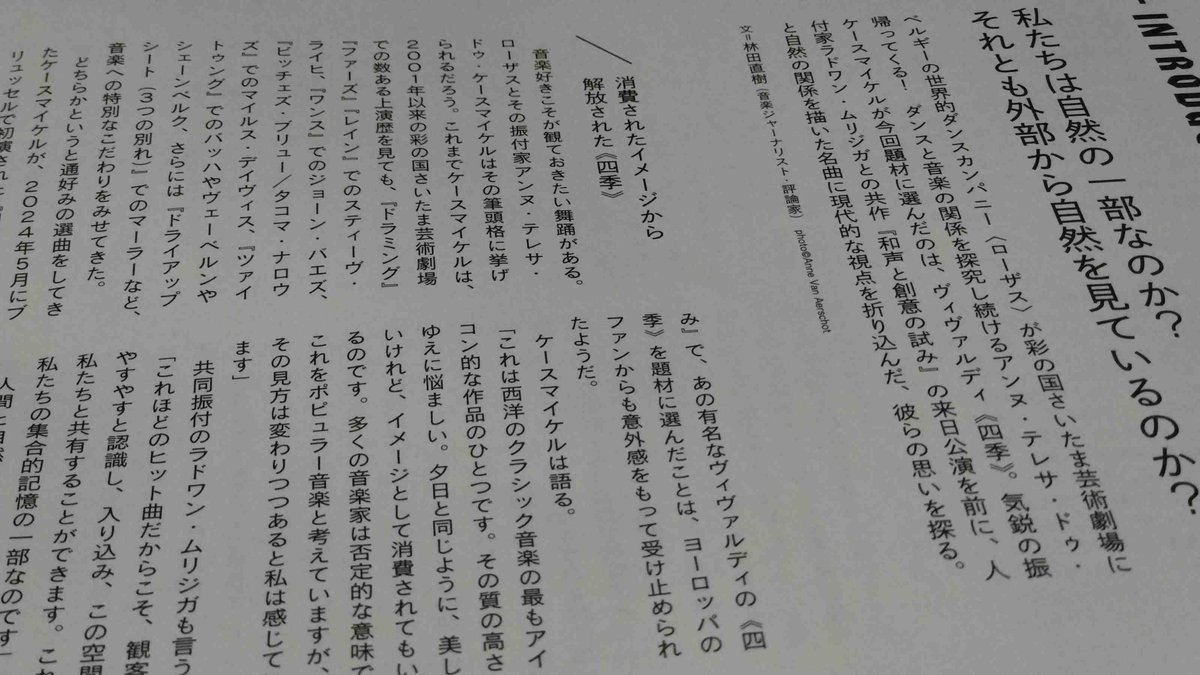 私たちは自然の一部なのか?
それとも外部から自然を見ているのか?
ベルギーの世界的ダンスカンパニー〈ローザス〉が彩の国さいたま芸術劇場に
帰ってくる! ダンスと音楽の関係を探究し続けるアンヌ・テレサ・ドゥ・
ケースマイケルが今回題材に選んだのは、ヴィヴァルディ《四季》。気鋭の振
付家ラドワン・ムリジガとの共作『和声と創意の試み』の来日公演を前に、人
と自然の関係を描いた名曲に現代的な視点を折り込んだ、彼らの思いを探る。
文=林田直樹(音楽ジャーナリスト・評論家) photo©Anne Van Aerschot
消費されたイメージから
解放された《四季》
音楽好きこそが観ておきたい舞踊がある。
ローザスとその振付家アンヌ・テレサ・
ドゥ・ケースマイケルはその筆頭格に挙げ
られるだろう。これまでケースマイケルは、
2001年以来の彩の国さいたま芸術劇場
での数ある上演歴を見ても、『ドラミング』
『ファーズ』『レイン』でのスティーヴ・
ライヒ、『ワンス』でのジョーン・バエズ、
『ビッチェズ・ブリュー/タコマ・ナロウ
ズ』でのマイルス・デイヴィス、『ツァイ
トゥング』でのバッハやヴェーベルンや
シェーンベルク、さらには『ドライアップ
シート(3つの別れ)』でのマーラーなど、
音楽への特別なこだわりをみせてきた。
どちらかというと通好みの選曲をしてき
たケースマイケルが、2024年5月にブ
リュッセルで初演された
み』で、あの有名なヴィヴァルディの《四
季》を題材に選んだことは、ヨーロッパの
ファンからも意外感をもって受け止められ
たようだ。
ケースマイケルは語る。
「これは西洋のクラシック音楽の最もアイ
コン的な作品のひとつです。その質の高さ
ゆえに悩ましい。夕日と同じように、美し
いけれど、イメージとして消費されてもい
るのです。多くの音楽家は否定的な意味で
これをポピュラー音楽と考えていますが、
その見方は変わりつつあると私は感じて
ます」
共同振付のラドワン・ムリジガも言う
「これほどのヒット曲だからこそ、観客
やすやすと認識し、入り込み、この空間
私たちと共有することができます。これ
私たちの集合的記憶の一部なのです」